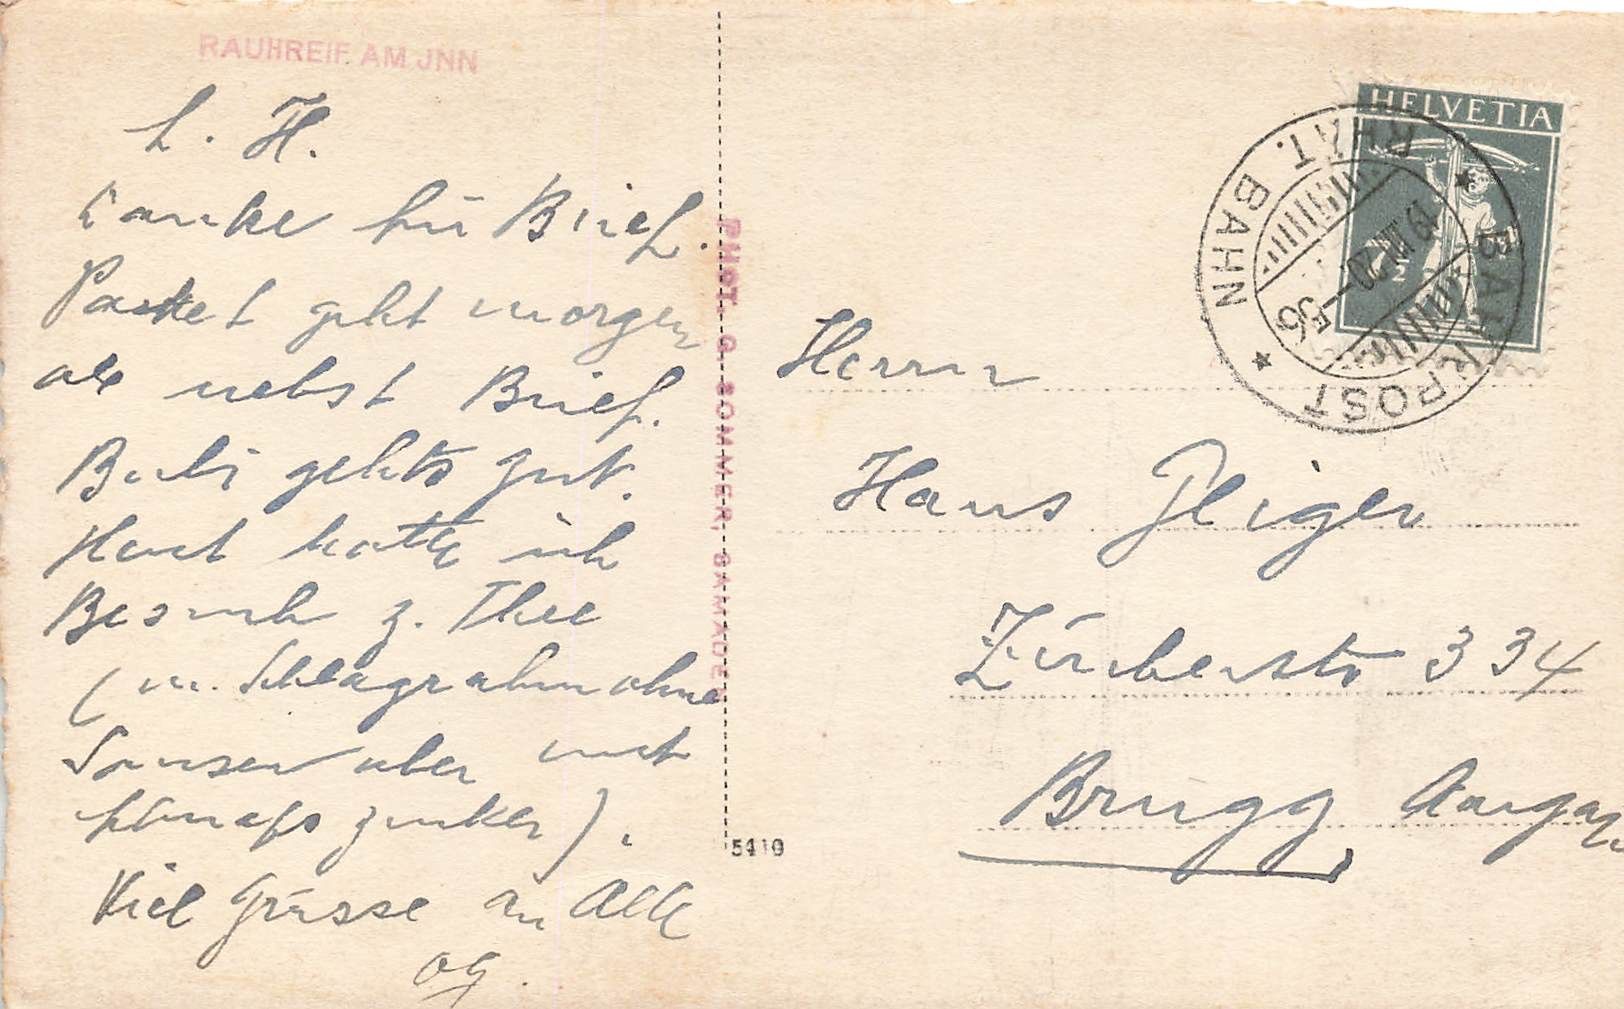 RAUHREIF AM JNN
L. H.
Danke für Brief.
Packet geht morgen
ab nebst Brief.
Bubi gehts gut.
Heut hatte ich
Besuch z. Thee
(m. Schlagrahm ohne
aber
zucker).
Viel Grüsse an Alle
PHOT. G. SOMMER, SAMADEN
5410
HELVETIA
7½
BAHNPOST
RHÄT. BAHN
Herrn
Hans
334
Brugg Aargau